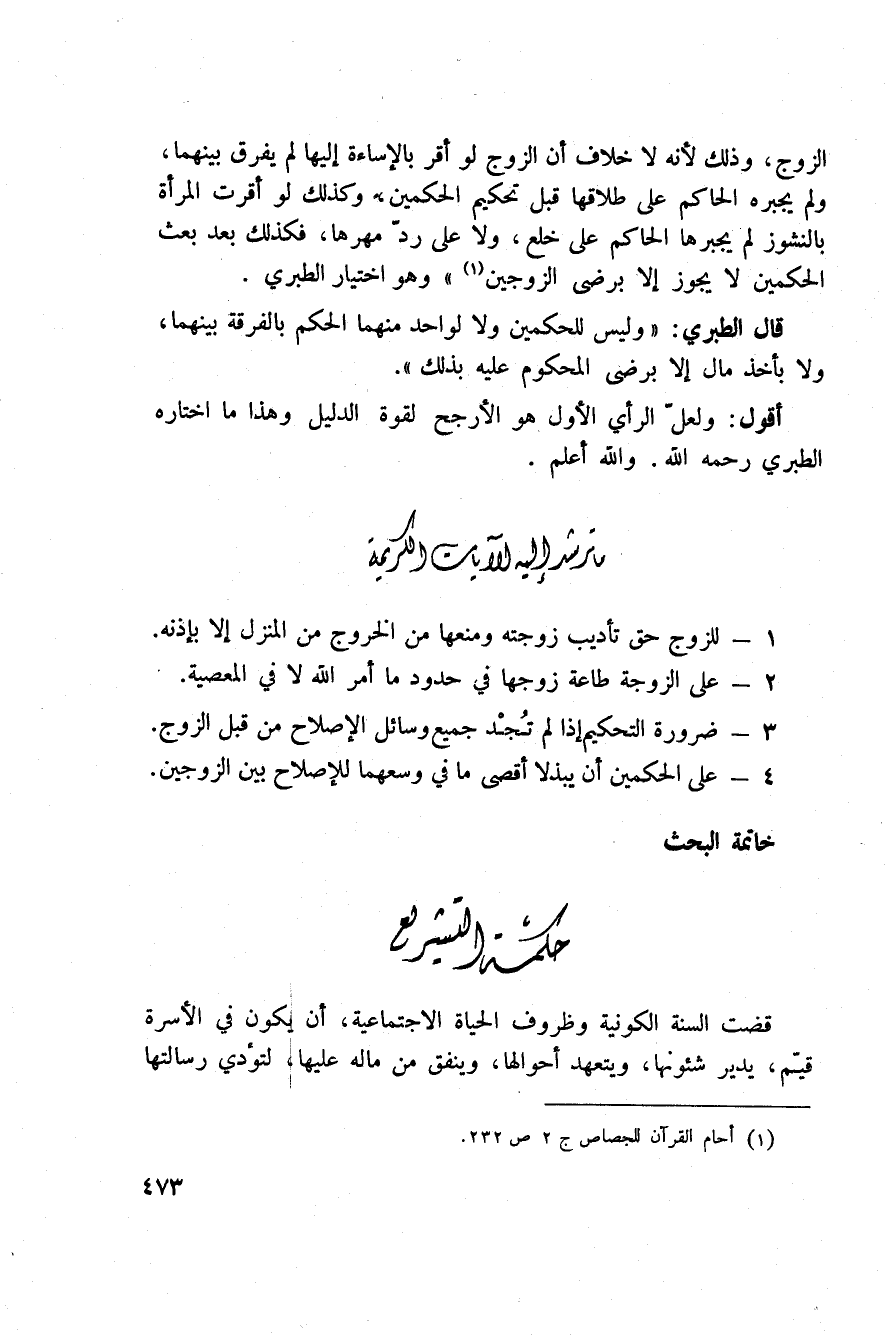 الزوج، وذلك لأنه لا خلاف أن الزوج لو أقر بالإساءة إليها لم يفرق بينهما،
ولم يجبره الحاكم على طلاقها قبل تحكيم الحكمين، وكذلك لو أقرت المرأة
بالنشوز لم يجبرها الحاكم على خلع، ولا على ردّ مهرها، فكذلك بعد بعث
الحكمين لا يجوز إلا برضى الزوجين(١) » وهو اختيار الطبري .
قال الطبري: « وليس للحكمين ولا لواحد منهما الحكم بالفرقة بينهما،
ولا بأخذ مال إلا برضى المحكوم عليه بذلك ».
أقول: ولعلّ الرأي الأول هو الأرجح لقوة الدليل وهذا ما اختاره
الطبري رحمه الله . والله أعلم .
ما ترشد إليه الآيات الكريمة
١ – للزوج حق تأديب زوجته ومنعها من الخروج من المنزل إلا بإذنه.
٢ – على الزوجة طاعة زوجها في حدود ما أمر الله لا في المعصية.
٣ – ضرورة التحكيم إذا لم تُجْد جميع وسائل الإصلاح من قبل الزوج.
٤ – على الحكمين أن يبذلا أقصى ما في وسعهما للإصلاح بين الزوجين.
خاتمة البحث
حكمة التشريع
قضت السنة الكونية وظروف الحياة الاجتماعية، أن يكون في الأسرة
قيّم، يدير شئونها، ويتعهد أحوالها، وينفق من ماله عليها، لتؤدي رسالتها
(١) أحام القرآن للجصاص ج ٢ ص ٢٣٢.
٤٧٣